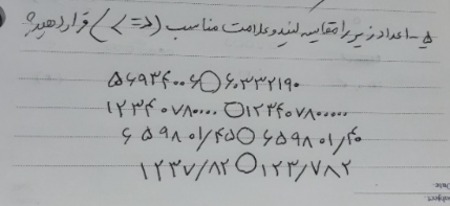 ۵- اعداد زیر را مقایسه کنید و علامت مناسب (< = >) قرار دهید؟
۵۶۹۳۴۰۰۶ ○ ۶۰۳۳۲۱۹۰
۱۲۳۴۰۷۸۰۰۰۰ ○ ۱۲۳۴۰۷۸۰۰۰۰۰۰
۶۵۹۸۰۱/۴۵ ○ ۶۵۹۸۰۱/۴۰
۱۲۳۷/۸۲ ○ ۱۲۳/۷۸۲